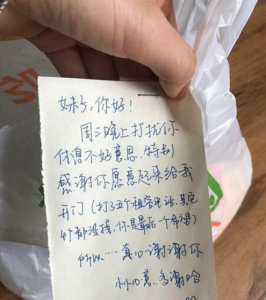 妹子，你好！
周三晚上打扰你
休息不好意思，特别
感谢你愿意起来给我
开门（打了五个租客电话，其它
4个都没接，你是最后一个希望）
所以…真心谢谢你
小小心意，多谢哈